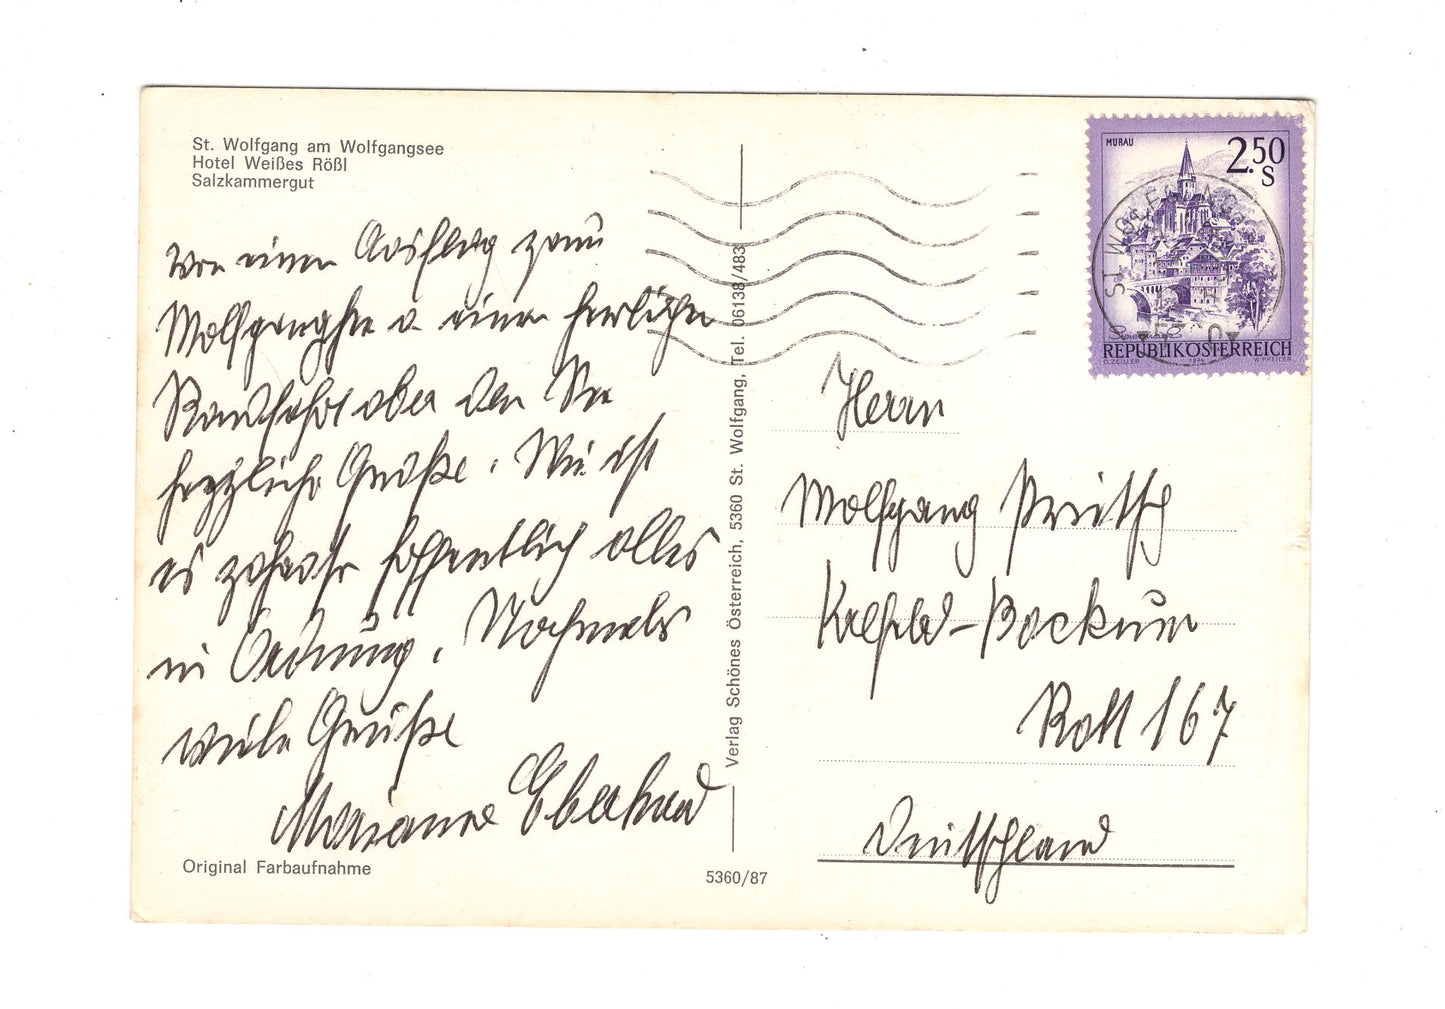 St. Wolfgang am Wolfgangsee
Hotel Weißes Rößl
Salzkammergut
Von einem Ausflug zum
Wolfgangsee u. einer herrlichen
Rundfahrt über den See
herzliche Grüße. Wie ist
es zuhause hoffentlich alles
in Ordnung. Nochmals
viele Grüße
Marianne Eberhard
Original Farbaufnahme
Verlag Schönes Österreich, 5360 St. Wolfgang, Tel. 06138/483
5360/87
MURAU
2.50
S
ST. WOLFGANG
REPUBLIK ÖSTERREICH
O. ZEILLER 1974 W. PFEILER
Herrn
Wolfgang
Krefeld-Bockum
167
Deutschland